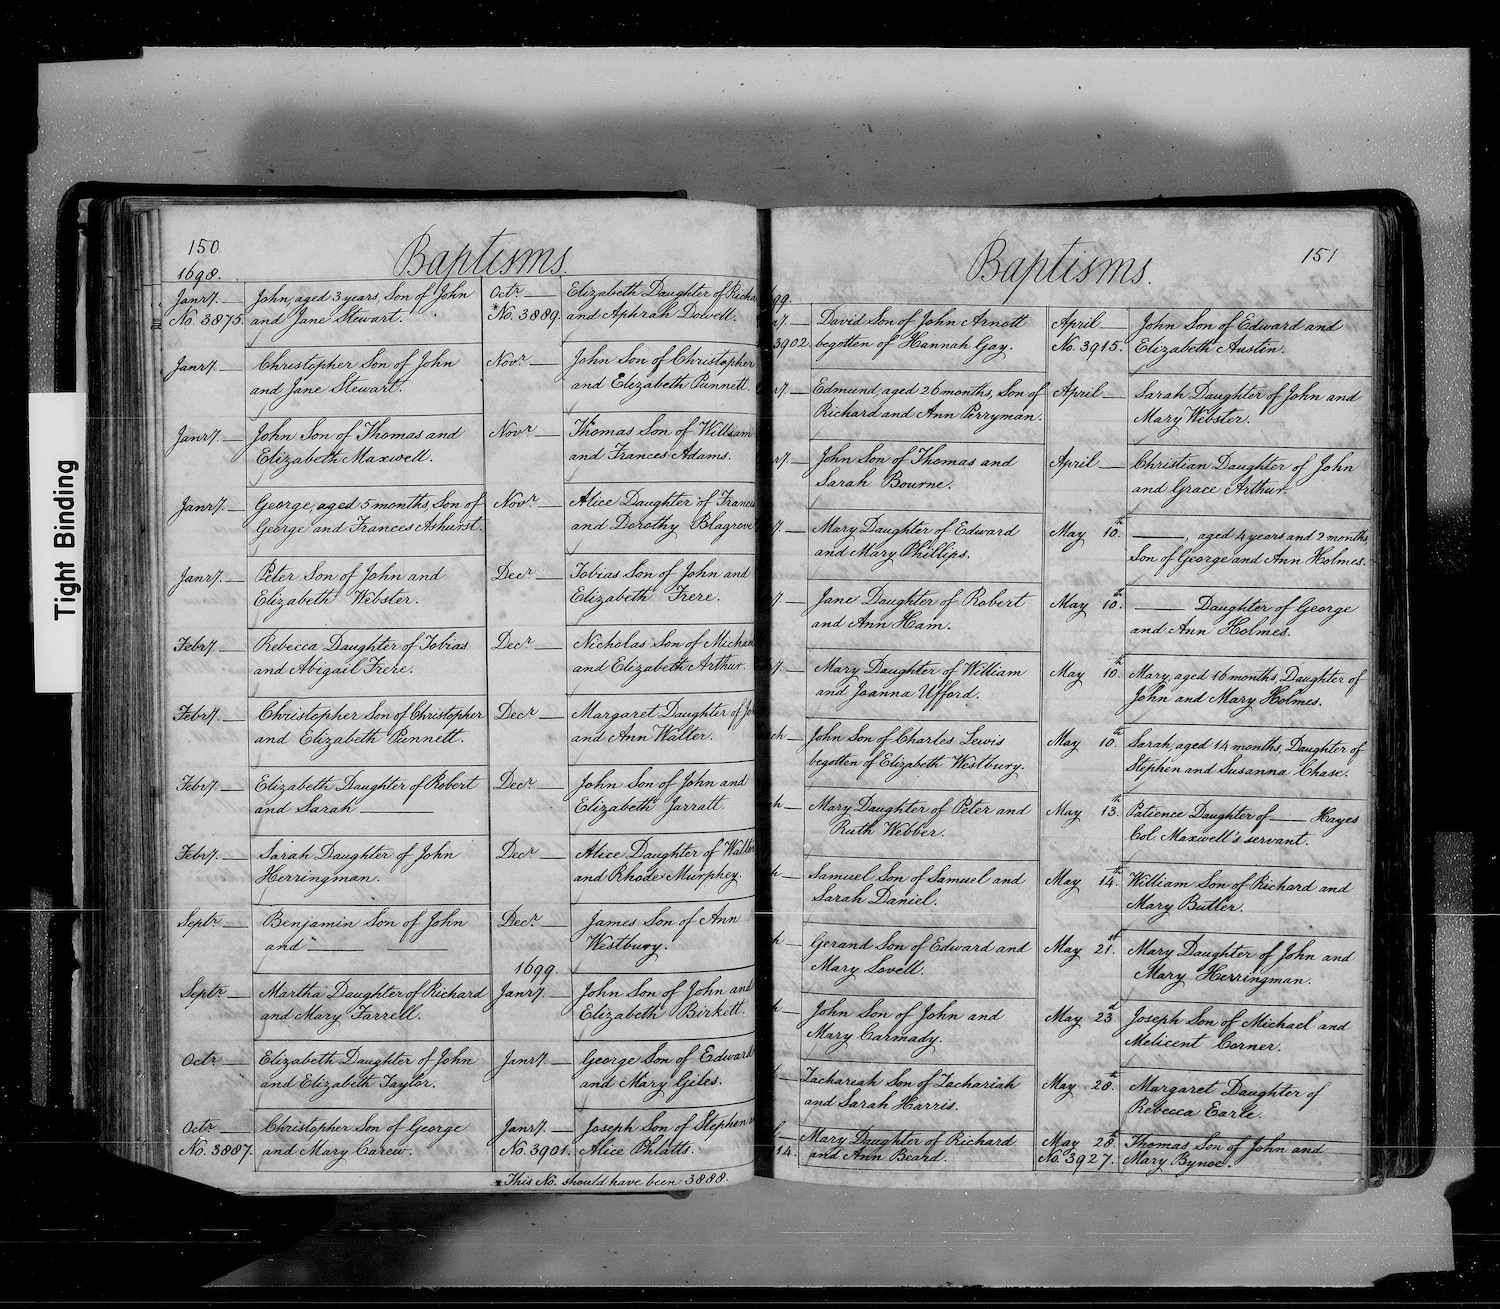 Tight Binding
150
Baptisms.
1698.
Janry. John, aged 3 years, Son of John
No. 3875. and Jane Stewart.
Janry. Christopher Son of John
and Jane Stewart.
Janry. John Son of Thomas and
Elizabeth Maxwell.
Janry. George, aged 5 months, Son of
George and Frances Ashurst.
Janry. Peter Son of John and
Elizabeth Webster.
Febry. Rebecca Daughter of Tobias
and Abigail Frere.
Febry. Christopher Son of Christopher
and Elizabeth Punnett.
Febry. Elizabeth Daughter of Robert
and Sarah ———
Febry. Sarah Daughter of John
Herringman.
Septr. Benjamin Son of John
and ———
Septr. Martha Daughter of Richard
and Mary Farrell.
Octr. Elizabeth Daughter of John
and Elizabeth Taylor.
Octr. Christopher Son of George
No. 3887. and Mary Carew.
Octr. Elizabeth Daughter of Richa
*No. 3889. and Aphrah Dowell.
Novr. John Son of Christopher
and Elizabeth Punnett.
Novr. Thomas Son of William
and Frances Adams.
Novr. Alice Daughter of Franci
and Dorothy Blagrove
Decr. Tobias Son of John and
Elizabeth Frere.
Decr. Nicholas Son of Michae
and Elizabeth Arthur.
Decr. Margaret Daughter of Jo
and Ann Walter.
Decr. John Son of John and
Elizabeth Jarratt
Decr. Alice Daughter of Walte
and Rhode Murphey.
Decr. James Son of Ann
Westbury.
1699.
Janry. John Son of John and
Elizabeth Birkett.
Janry. George Son of Edward
and Mary Giles.
Janry. Joseph Son of Stephen
No. 3901. Alice Phlatts.
*This No. should have been 3888.
Baptisms.
151
99.
ry. David Son of John Arnott
3902 begotten of Hannah Gay.
ry. Edmund, aged 26 months, Son of
Richard and Ann Perryman.
ry. John Son of Thomas and
Sarah Bourne.
y. Mary Daughter of Edward
and Mary Phillips.
y. Jane Daughter of Robert
and Ann Ham.
y. Mary Daughter of William
and Joanna Ufford.
ch John Son of Charles Lewis
begotten of Elizabeth Westbury.
ch Mary Daughter of Peter and
Ruth Webber.
h Samuel Son of Samuel and
Sarah Daniel.
h Gerand Son of Edward and
Mary Lovell.
h John Son of John and
Mary Carmady.
Zachariah Son of Zachariah
and Sarah Harris.
l Mary Daughter of Richard
14. and Ann Beard.
April John Son of Edward and
No. 3915. Elizabeth Austin.
April Sarah Daughter of John and
Mary Webster.
April Christian Daughter of John
and Grace Arthur.
May 10.th ———, aged 4 years and 2 months
Son of George and Ann Holmes.
May 10.th ——— Daughter of George
and Ann Holmes.
May 10.th Mary, aged 16 months, Daughter of
John and Mary Holmes.
May 10.th Sarah, aged 14 months, Daughter of
Stephen and Susanna Chase.
May 13.th Patience Daughter of ——— Hayes
Col. Maxwell's servant.
May 14.th William Son of Richard and
Mary Butler.
May 21.st Mary Daughter of John and
Mary Herringman.
May 23.d Joseph Son of Michael and
Melicent Corner.
May 28.th Margaret Daughter of
Rebecca Earle.
May 28.th Thomas Son of John and
No. 3927. Mary Bynoe.